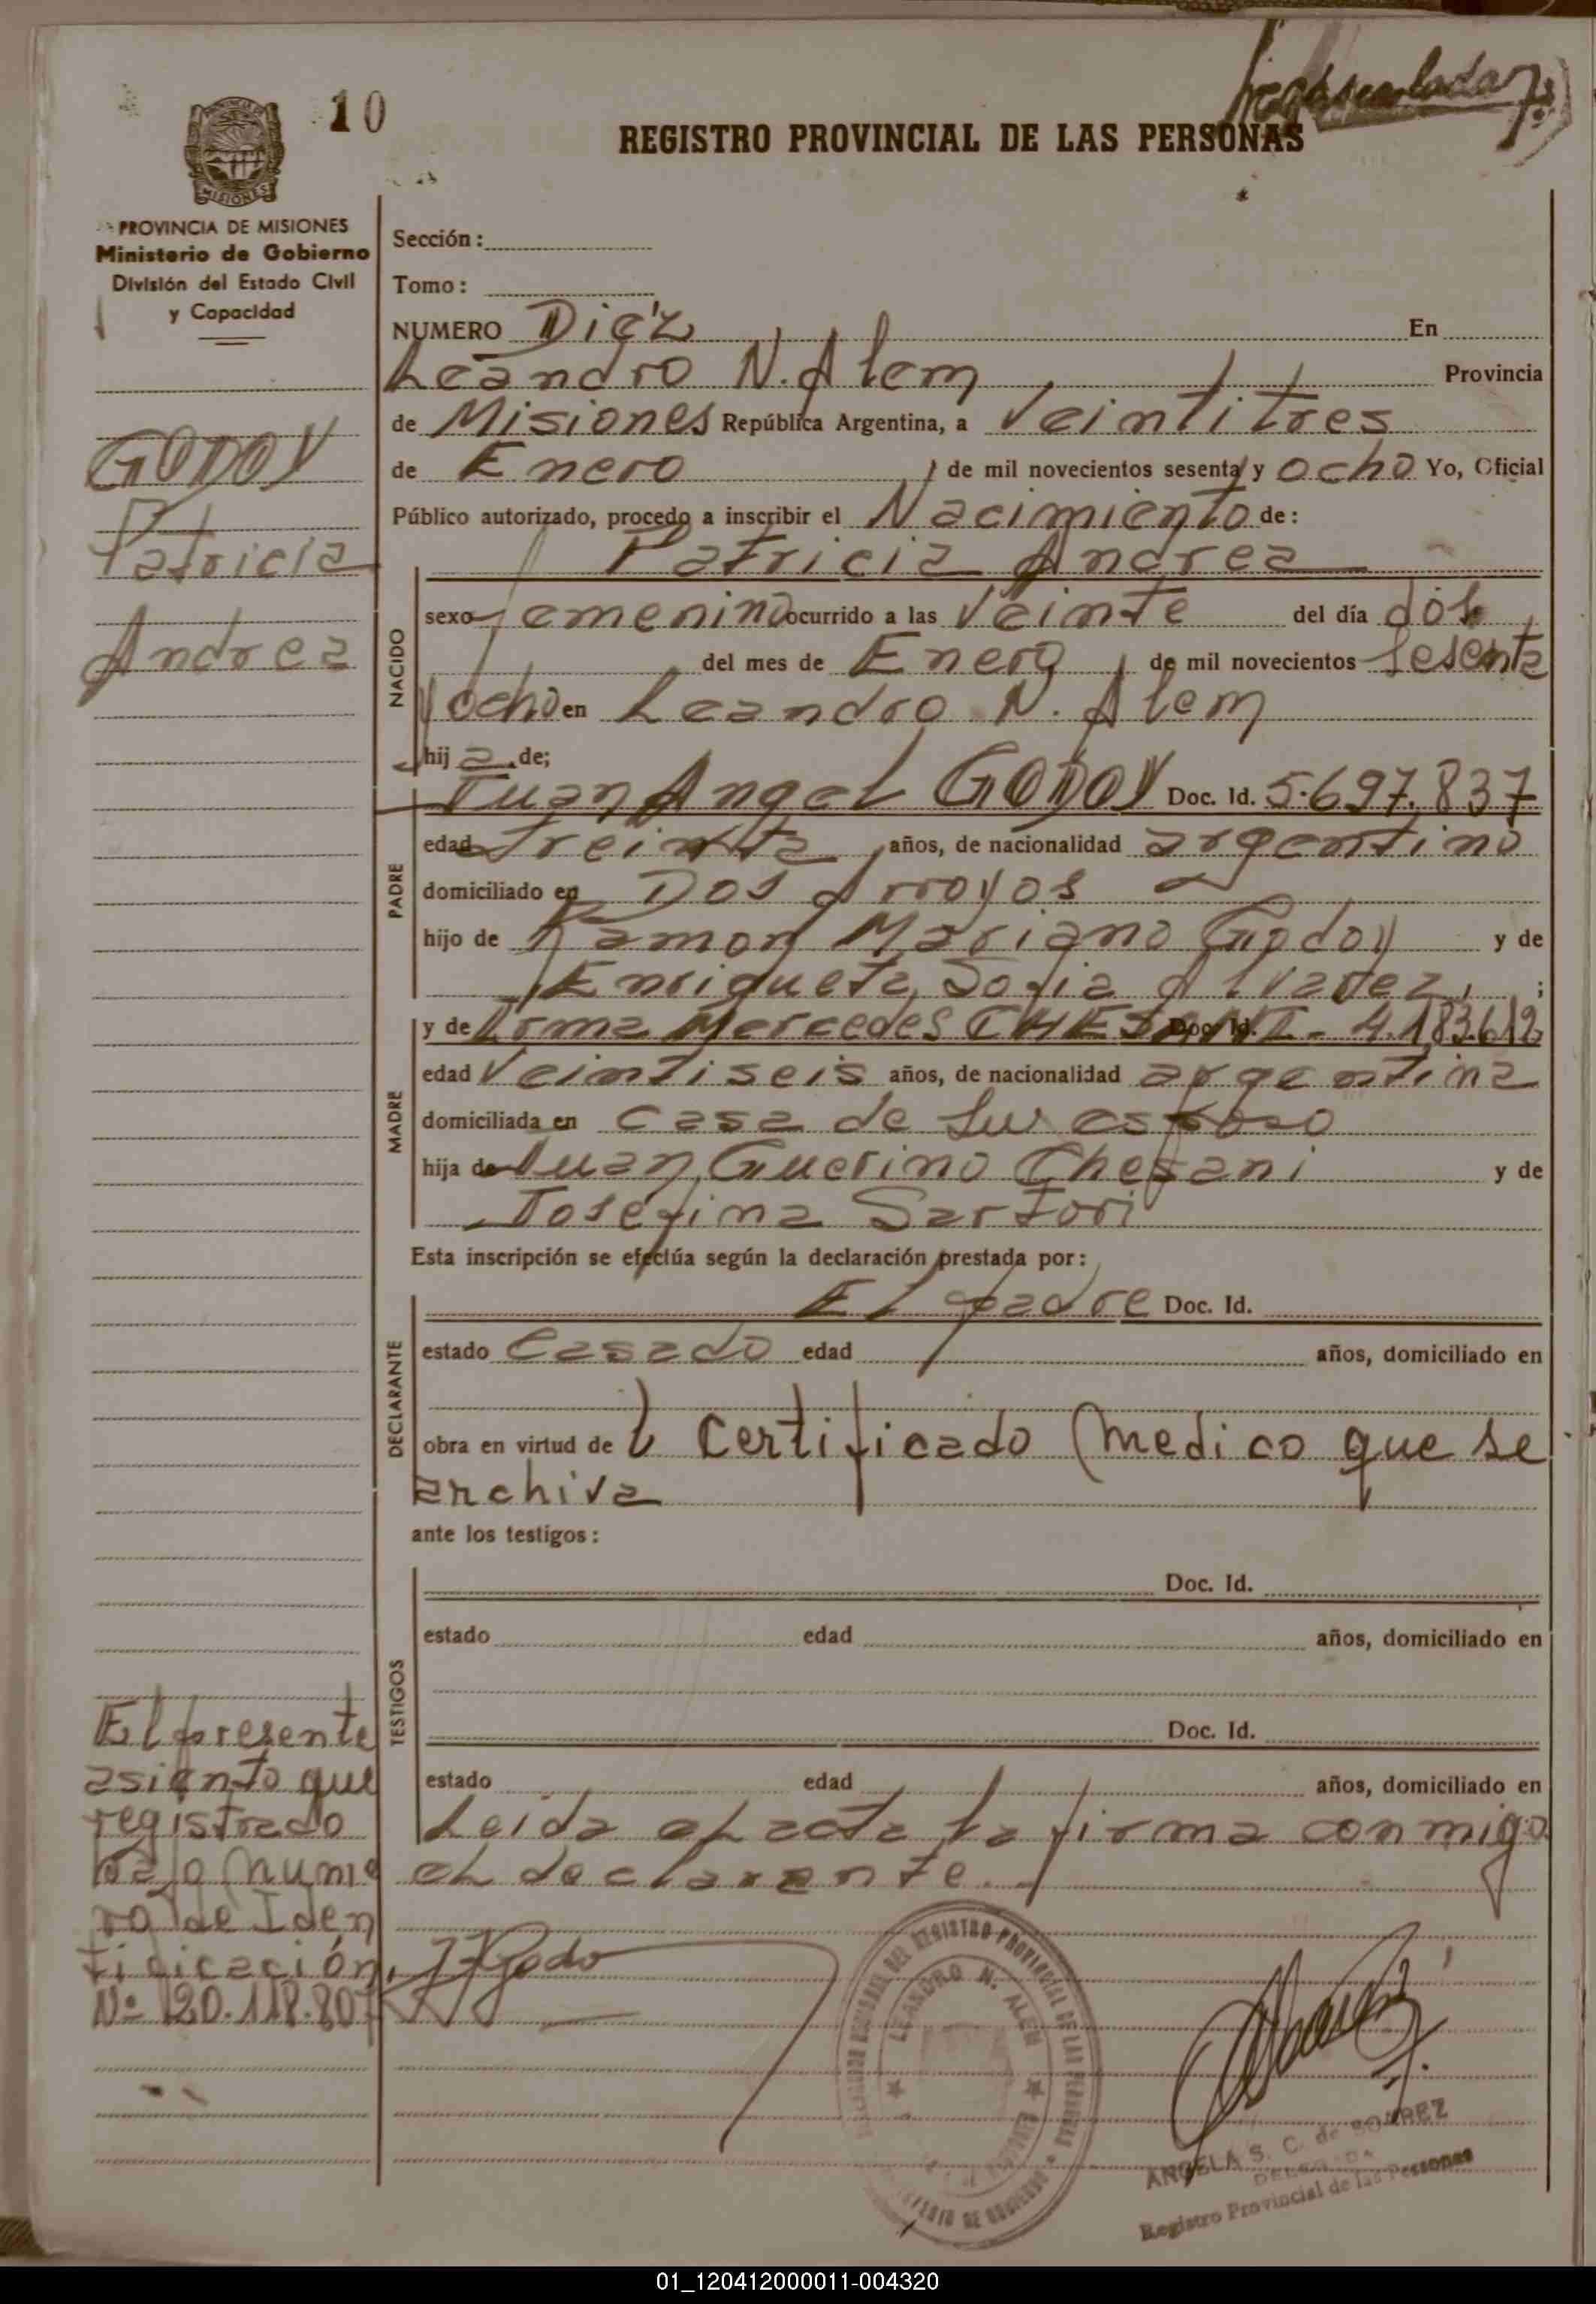 10
REGISTRO PROVINCIAL DE LAS PERSONAS
MISIONES
PROVINCIA DE MISIONES
Ministerio de Gobierno
División del Estado Civil
y Capacidad
GODOY
Patricia
Andrea
Sección:
Tomo:
NUMERO Diéz En
Leandro N. Alem, Provincia
de Misiones República Argentina, a Veintitres
de Enero, de mil novecientos sesenta y ocho Yo, Oficial
Público autorizado, procedo a inscribir el Nacimiento de:
Patricia Andrea
NACIDO
sexo femenino ocurrido a las Veinte del día dos
del mes de Enero, de mil novecientos sesenta
y ocho en Leandro N. Alem
hij a de;
PADRE
Juan Angel GODOY Doc. Id. 5.697.837
edad treinta, años, de nacionalidad argentino
domiciliado en Dos Arroyos
hijo de Ramon Mariano Godoy y de
Enriqueta Sofia Alvarez, ;
MADRE
y de Irma Mercedes CHESANI Doc. Id. 4.183.612
edad Veintiseis años, de nacionalidad argentina
domiciliada en casa de su esposo
hija de Juan Guerino Chesani y de
Josefina Sartori
Esta inscripción se efectúa según la declaración prestada por:
DECLARANTE
El padre Doc. Id.
estado Casado edad años, domiciliado en
obra en virtud de Certificado medico que se
archiva
ante los testigos:
TESTIGOS
Doc. Id.
estado edad años, domiciliado en
Doc. Id.
estado edad años, domiciliado en
Leida el acta la firma conmigo
el declarante.
El presente
asiento que
registrado
bajo nume
ro de Iden
tificación
Nº 20.118.807
LEANDRO N. ALEM
ANGELA S. C. de SOAREZ
Registro Provincial de las Personas
01_120412000011-004320